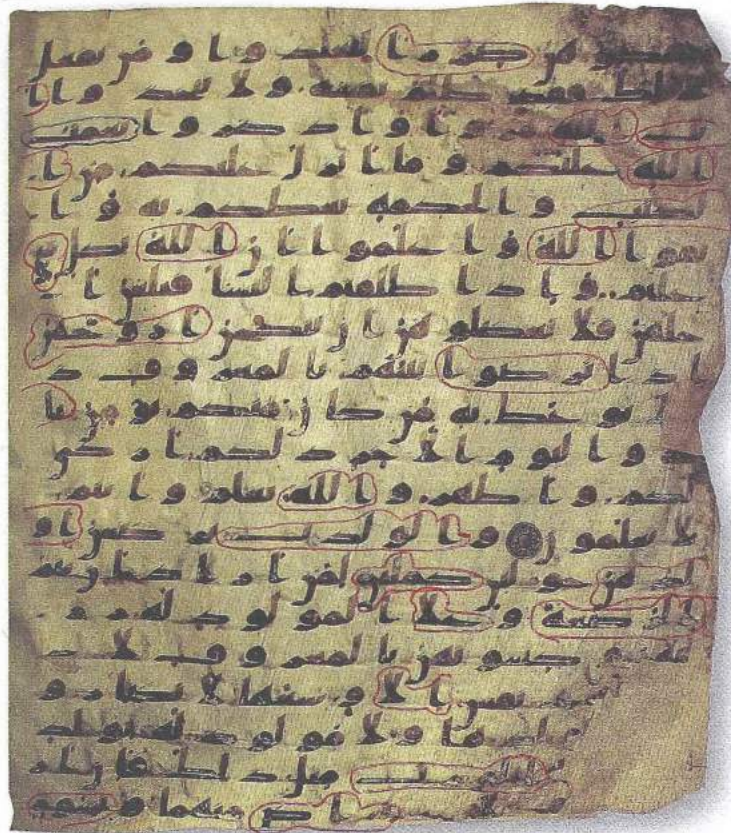 تمسكوهن ضررا لتعتدوا ومن يفعل
ذلك فقد ظلم نفسه ولا تتخذوا ا
يت الله هزوا واذكروا نعمت
الله عليكم وما انزل عليكم من ا
لكتب والحكمة يعظكم به وا
تقوا الله واعلموا ان الله بكل شي
عليم واذا طلقتم النسا فبلغن ا
جلهن فلا تعضلوهن ان ينكحن ازوجهن
اذا ترضوا بينهم بالمعروف ذ
لك يوعظ به من كان منكم يومن با
لله واليوم الاخر ذلكم ازكى
لكم واطهر والله يعلم وانتم
لا تعلمون والولدت يرضعن او
لدهن حولين كملين لمن اراد ان يتم
الرضعة وعلى المولود له ر
زقهن وكسوتهن بالمعروف لا ت
كلف نفس الا وسعها لا تضار و
لدة بولدها ولا مولود له بولده
وعلى الورث مثل ذلك فان ارا
دا فصالا عن تراض منهما وتشاور